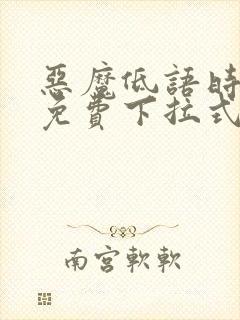 惡魔低語時
免費下拉式
南宮軟軟